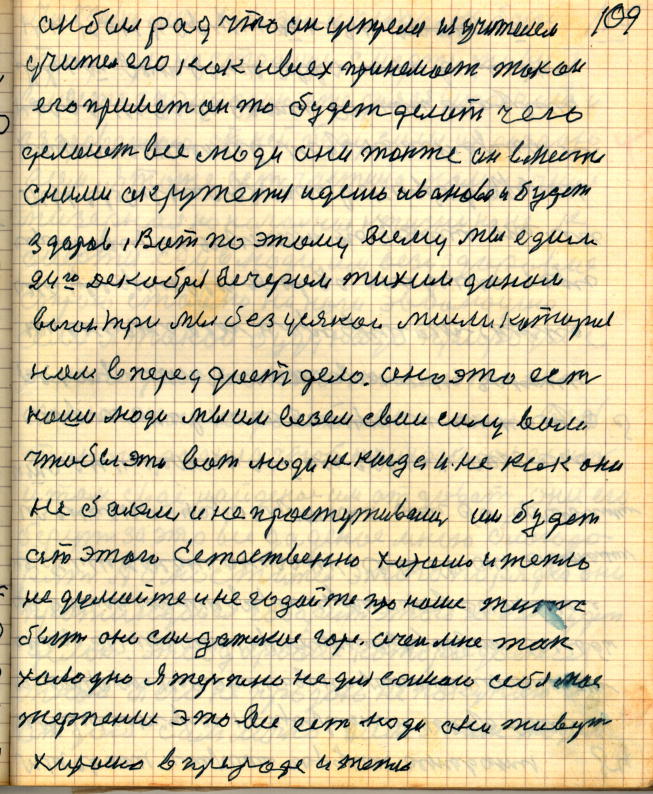 109
он был рад что он устрела и учителем
учител его как и всех принемает так он
его примет он то будет делат чего
делают все люди они тоже он вместе
сними окружется идеть иваново и будет
здоров, Вот по этому всему мы едим
24го декабря вечером тихим доном
вагон три мы без усякой мысли которая
нам вперед дает дело. оно это ест
наши люди мы им везем свои силу воли
чтобы эти вот люди некогда и не как они
не болели и не простуживали, им будет
от этого Естественно хорошо и тепло
не думайте и не годайте про наше
быт оно солдатское горе. очен мне так
холодно Я терплю не для самого себя мое
терпение это все ест люди они живут
хорошо в природе и тепло